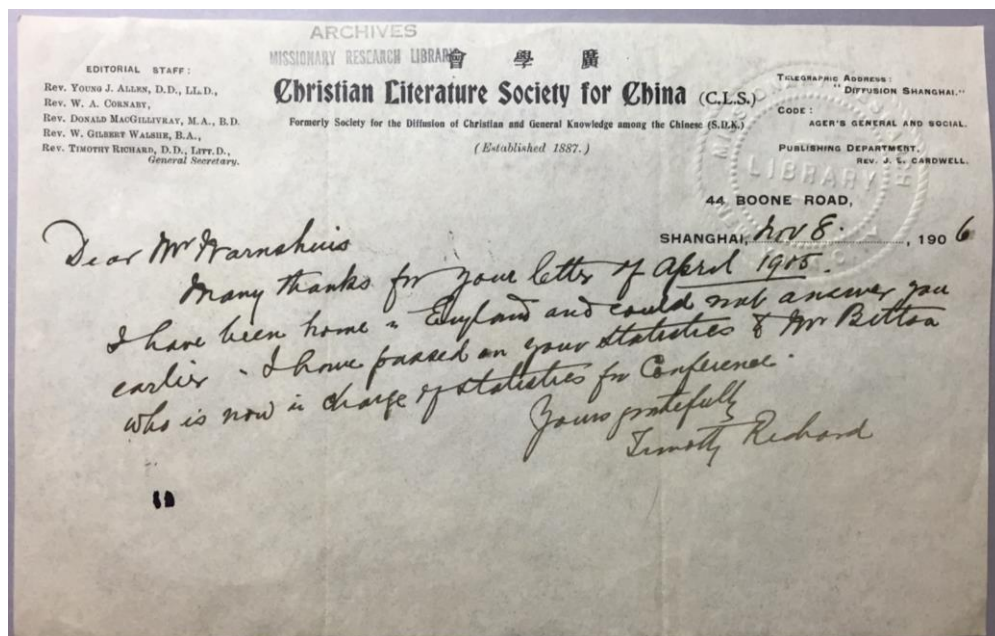 ARCHIVES
MISSIONARY RESEARCH LIBRARY
會 學 廣
EDITORIAL STAFF:
Rev. Young J. Allen, D.D., LL.D.,
Rev. W. A. Cornaby,
Rev. Donald MacGillivray, M.A., B.D.
Rev. W. Gilbert Walshe, B.A.,
Rev. Timothy Richard, D.D., Litt.D.,
General Secretary.
Christian Literature Society for China (C.L.S.)
Formerly Society for the Diffusion of Christian and General Knowledge among the Chinese (S.D.K.)
(Established 1887.)
Telegraphic Address:
"Diffusion Shanghai."
Code:
Ager's General and Social.
Publishing Department,
Rev. J. L. Cardwell.
LIBRARY
44 BOONE ROAD,
SHANGHAI, Nov 8. , 1906
Dear Mr Warnshuis
Many thanks for your letter of April 1905.
I have been home in England and could not answer you
earlier. I have passed on your statistics to Mr Bitton
who is now in charge of statistics for Conference.
Yours gratefully
Timothy Richard